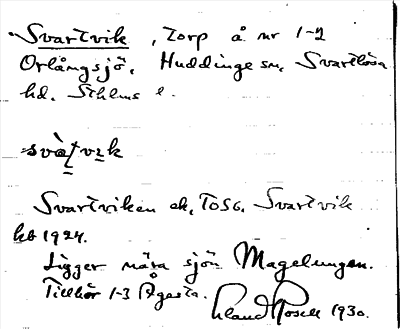 Svartvik, torp å nr 1-2
Orlångsjö, Huddinge sn, Svartlösa
hd. Sthlms l.
svàṯvi̱k
Svartviken ek, TOSG. Svartvik
kb 1924.
Ligger nära sjön Magelungen.
Tillhör 1-3 Ågesta.
Roselt 1930.